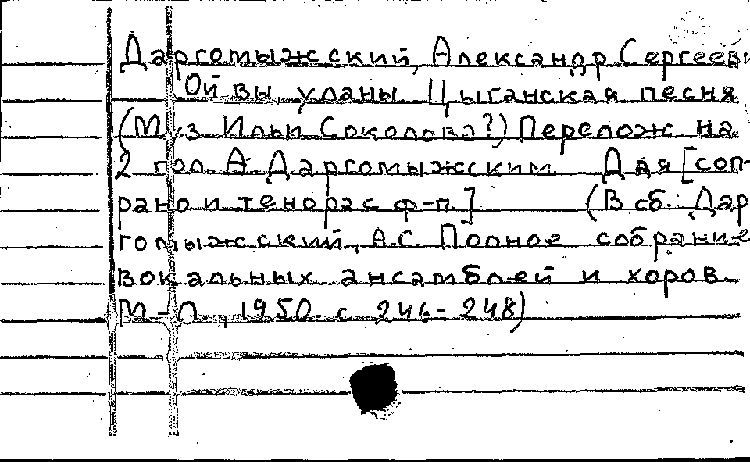 Даргомыжский, Александр Сергееви
Ой вы, уланы. Цыганская песня
(Муз. Ильи Соколова?) Перелож. на
2 гол. А. Даргомыжским. Для [соп-
рано и тенора с ф-п.] (В сб.: Дар
гомыжский, А.С. Полное собрание
вокальных ансамблей и хоров.
М-Л., 1950. с 246-248)